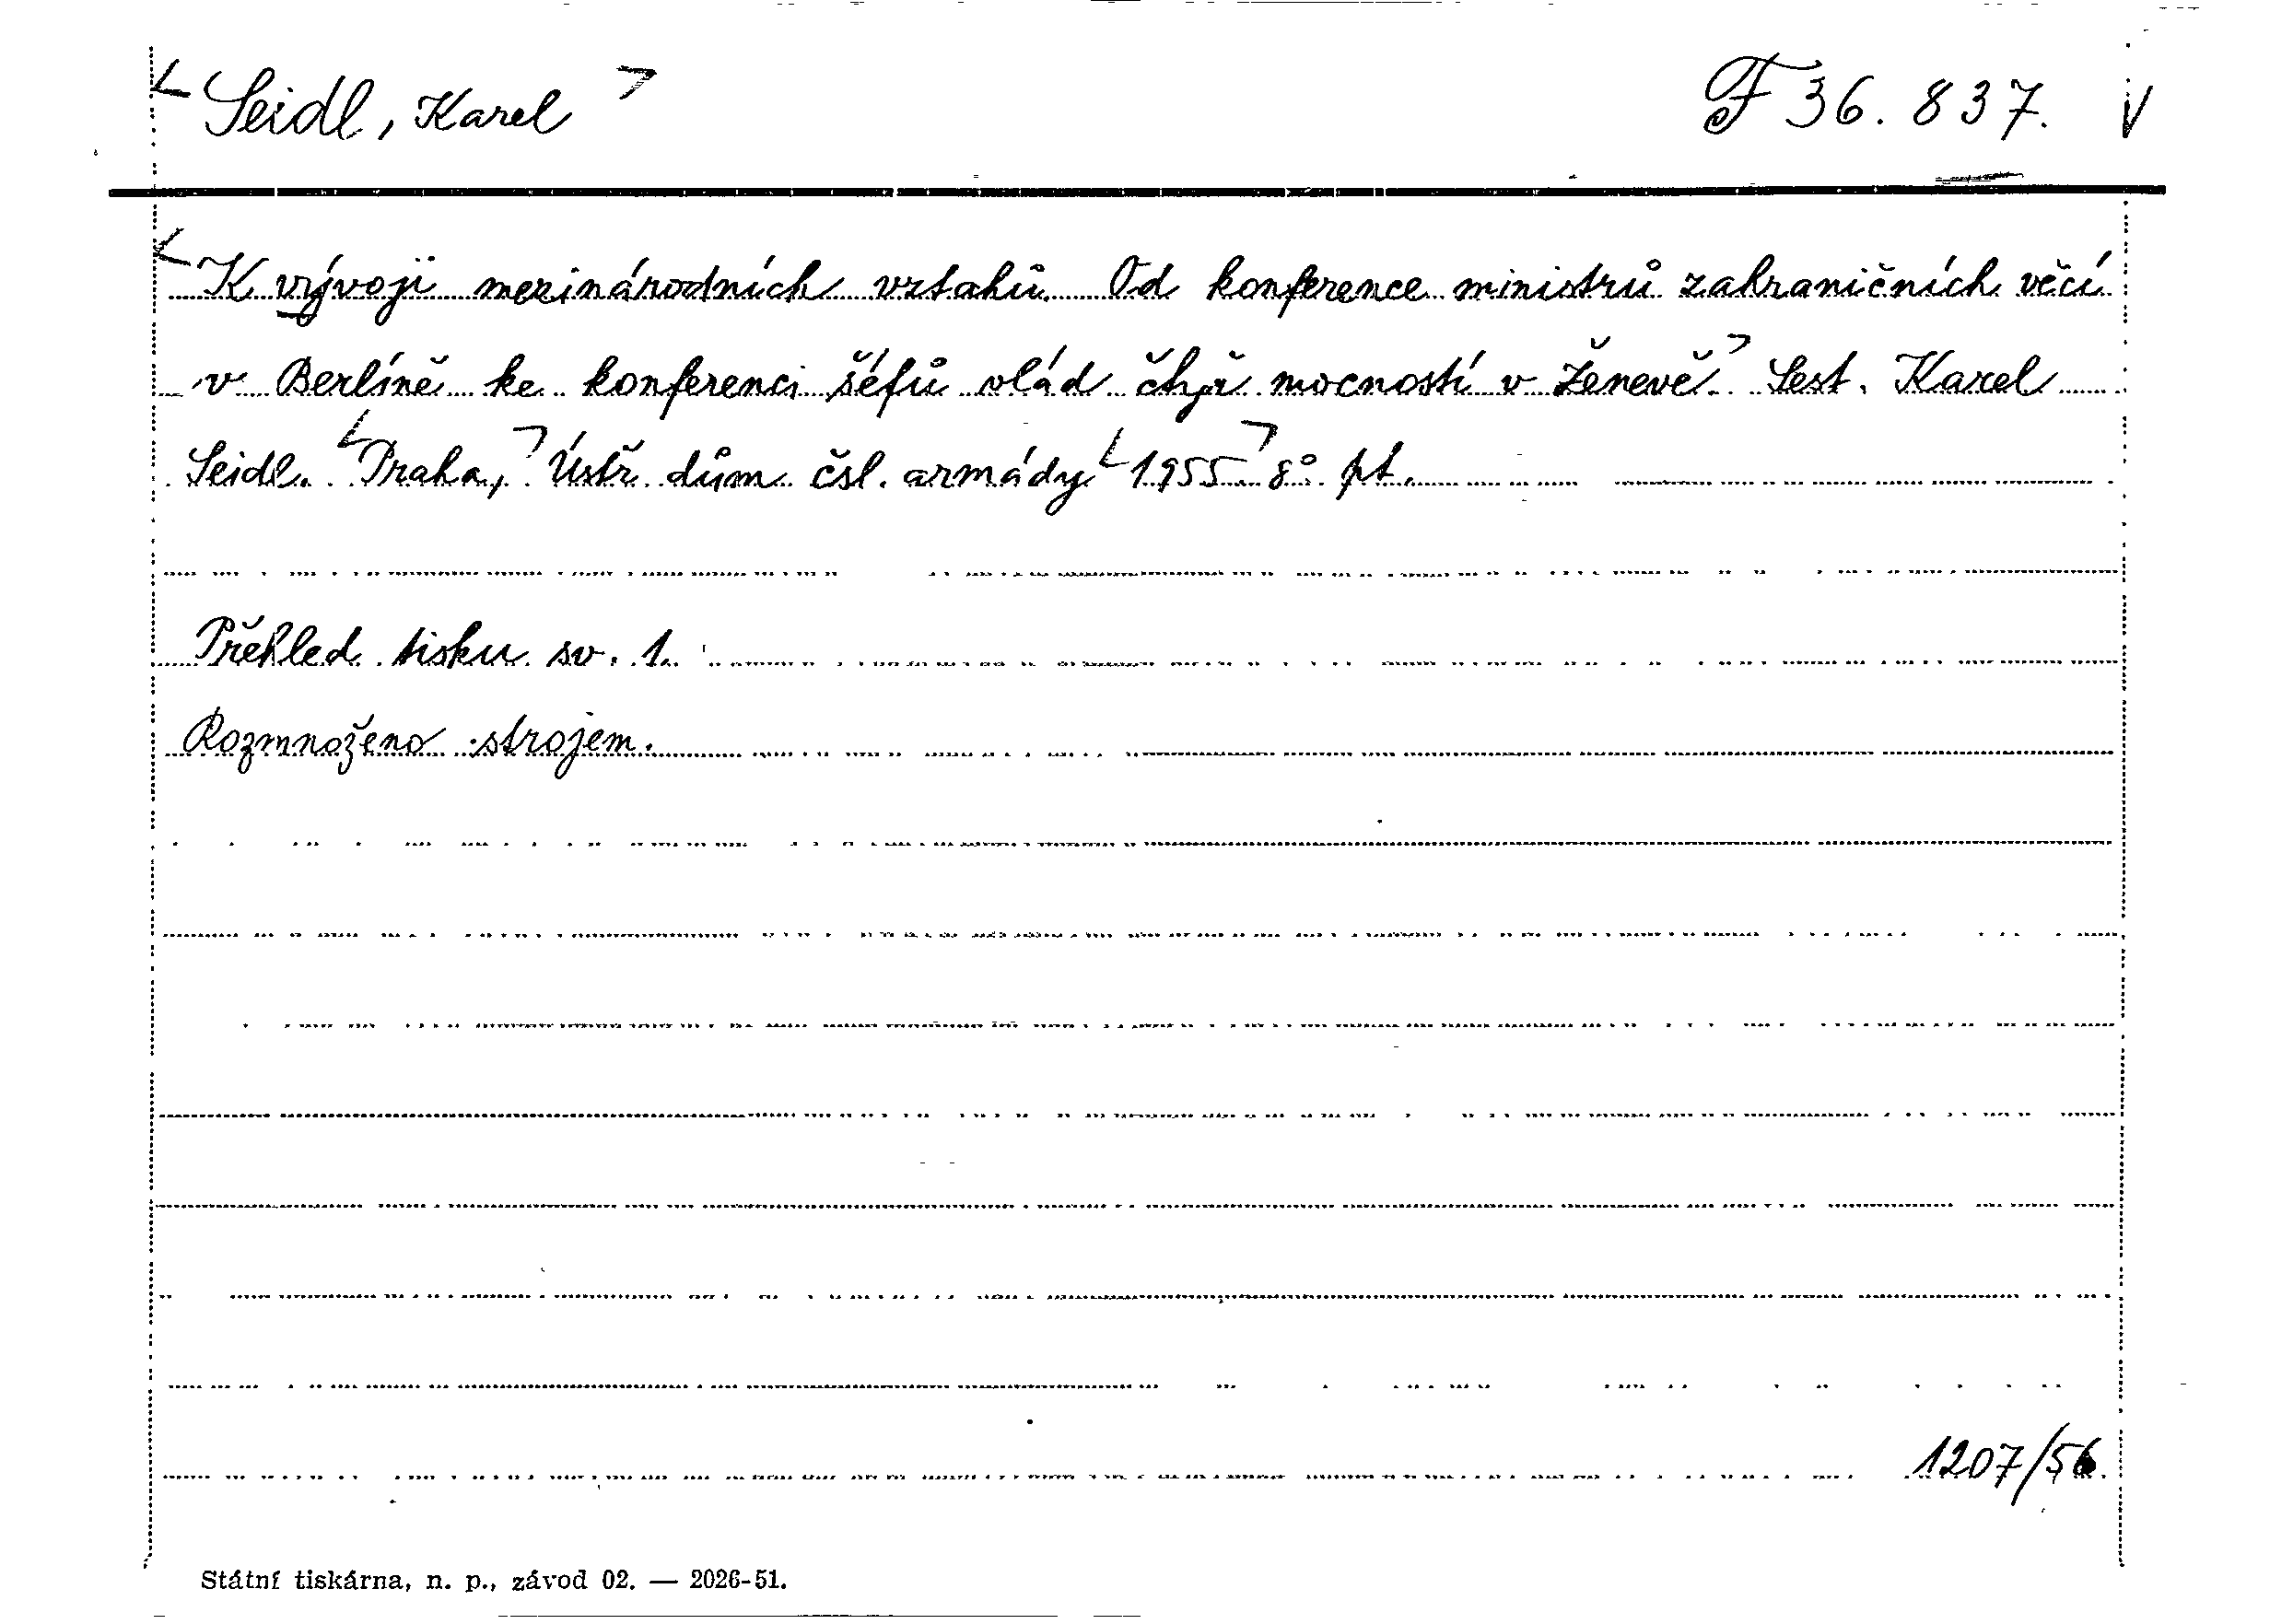 Seidl, Karel F 36.837. V
K vývoji mezinárodních vztahů. Od konference ministrů zahraničních věcí
v Berlíně ke konferenci šéfů vlád čtyř mocností v Ženevě. Sest. Karel
Seidl. Praha, Ústř. dům čsl. armády 1955. 8°. pt.
Přehled tisku sv. 1.
Rozmnoženo strojem.
1207/56.
Státní tiskárna, n. p., závod 02. — 2026-51.